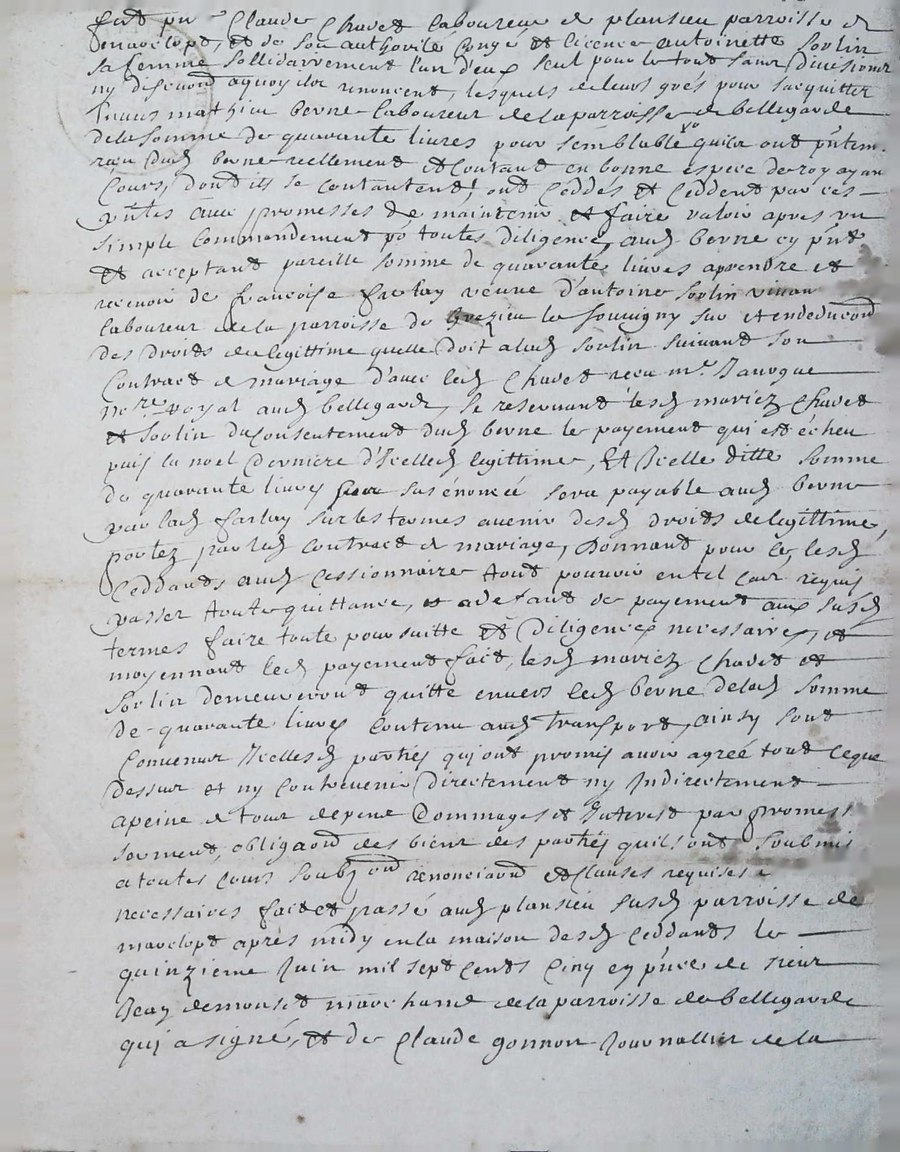 fut pnt Claude Chavet laboureur de plansieu parroisse de
et de son authorité Congé et licence antoinette Sorlin
sa femme sollidairement l'un d'eux seul pour le tout sans division
ny discution aquoy ilz renoncent, lesquels de leurs grés pour sacquitter
Envers mathieu berne laboureur de la parroisse de bellegarde
de la somme de quarante livres pour semblable qu'ilz ont
reçu dud berne reellement et contant en bonne espece de roy ayant
Cours, dont ils se contantent, ont Ceddés et Ceddent par ces
pntes avec promesses de maintenir et faire valoir apres un
simple Commandement po toutes diligences, aud berne cy pnt
et acceptant pareille somme de quarante livres aprendre et
recevoir de francoise farlay veuve d'antoine Sorlin vivant
laboureur de la parroisse de Grezieu le fromigny sur et en deduon
des droits de legittime quelle doit alad Sorlin suivant son
Contract de mariage d'avec led Chavet recu me
nore royal aud bellegarde, se reservant lesd mariez Chavet
et Sorlin du consentement dud berne le payement qui est écheu
puis la noel derniere d'Icelled legittime, Et Icelle ditte somme
de quarante livres sus énoncée sera payable aud berne
par lad farlay sur les termes avenir desd droits de legittime,
portez par led contract de mariage, Donnant pour ce, lesd
Ceddants aud Cessionnaire tout pouvoir en tel cas requis
passer toute quittance, et a defaut de payement aux susd
termes faire toute poursuitte et Diligences necessaires, et
moyennant led payement fait, lesd mariez Chavet et
Sorlin demeureront quitte envers led berne delad somme
de quarante livres Contenu aud transport, ainsy sont
Convenues Icellesd parties qui ont promis avoir agreé tout ceque
dessus et ny contrevenir Directement ny Indirectement
apeine de tous depens Dommages et Interest par promess
serment, obligaon des biens des parties qu'ils ont Soubmis
a toutes cours Soubzon renonciaon et Clauses requises &
necessaires fait et passé aud plansieu susd parroisse de
mavelopt après midy en la maison desd Ceddants le
quinzieme Juin mil sept cents Cinq en pnce de sieur
Jean demouset marchand de la parroisse de bellegarde
qui a signé, et de Claude gonnon Journallier de la